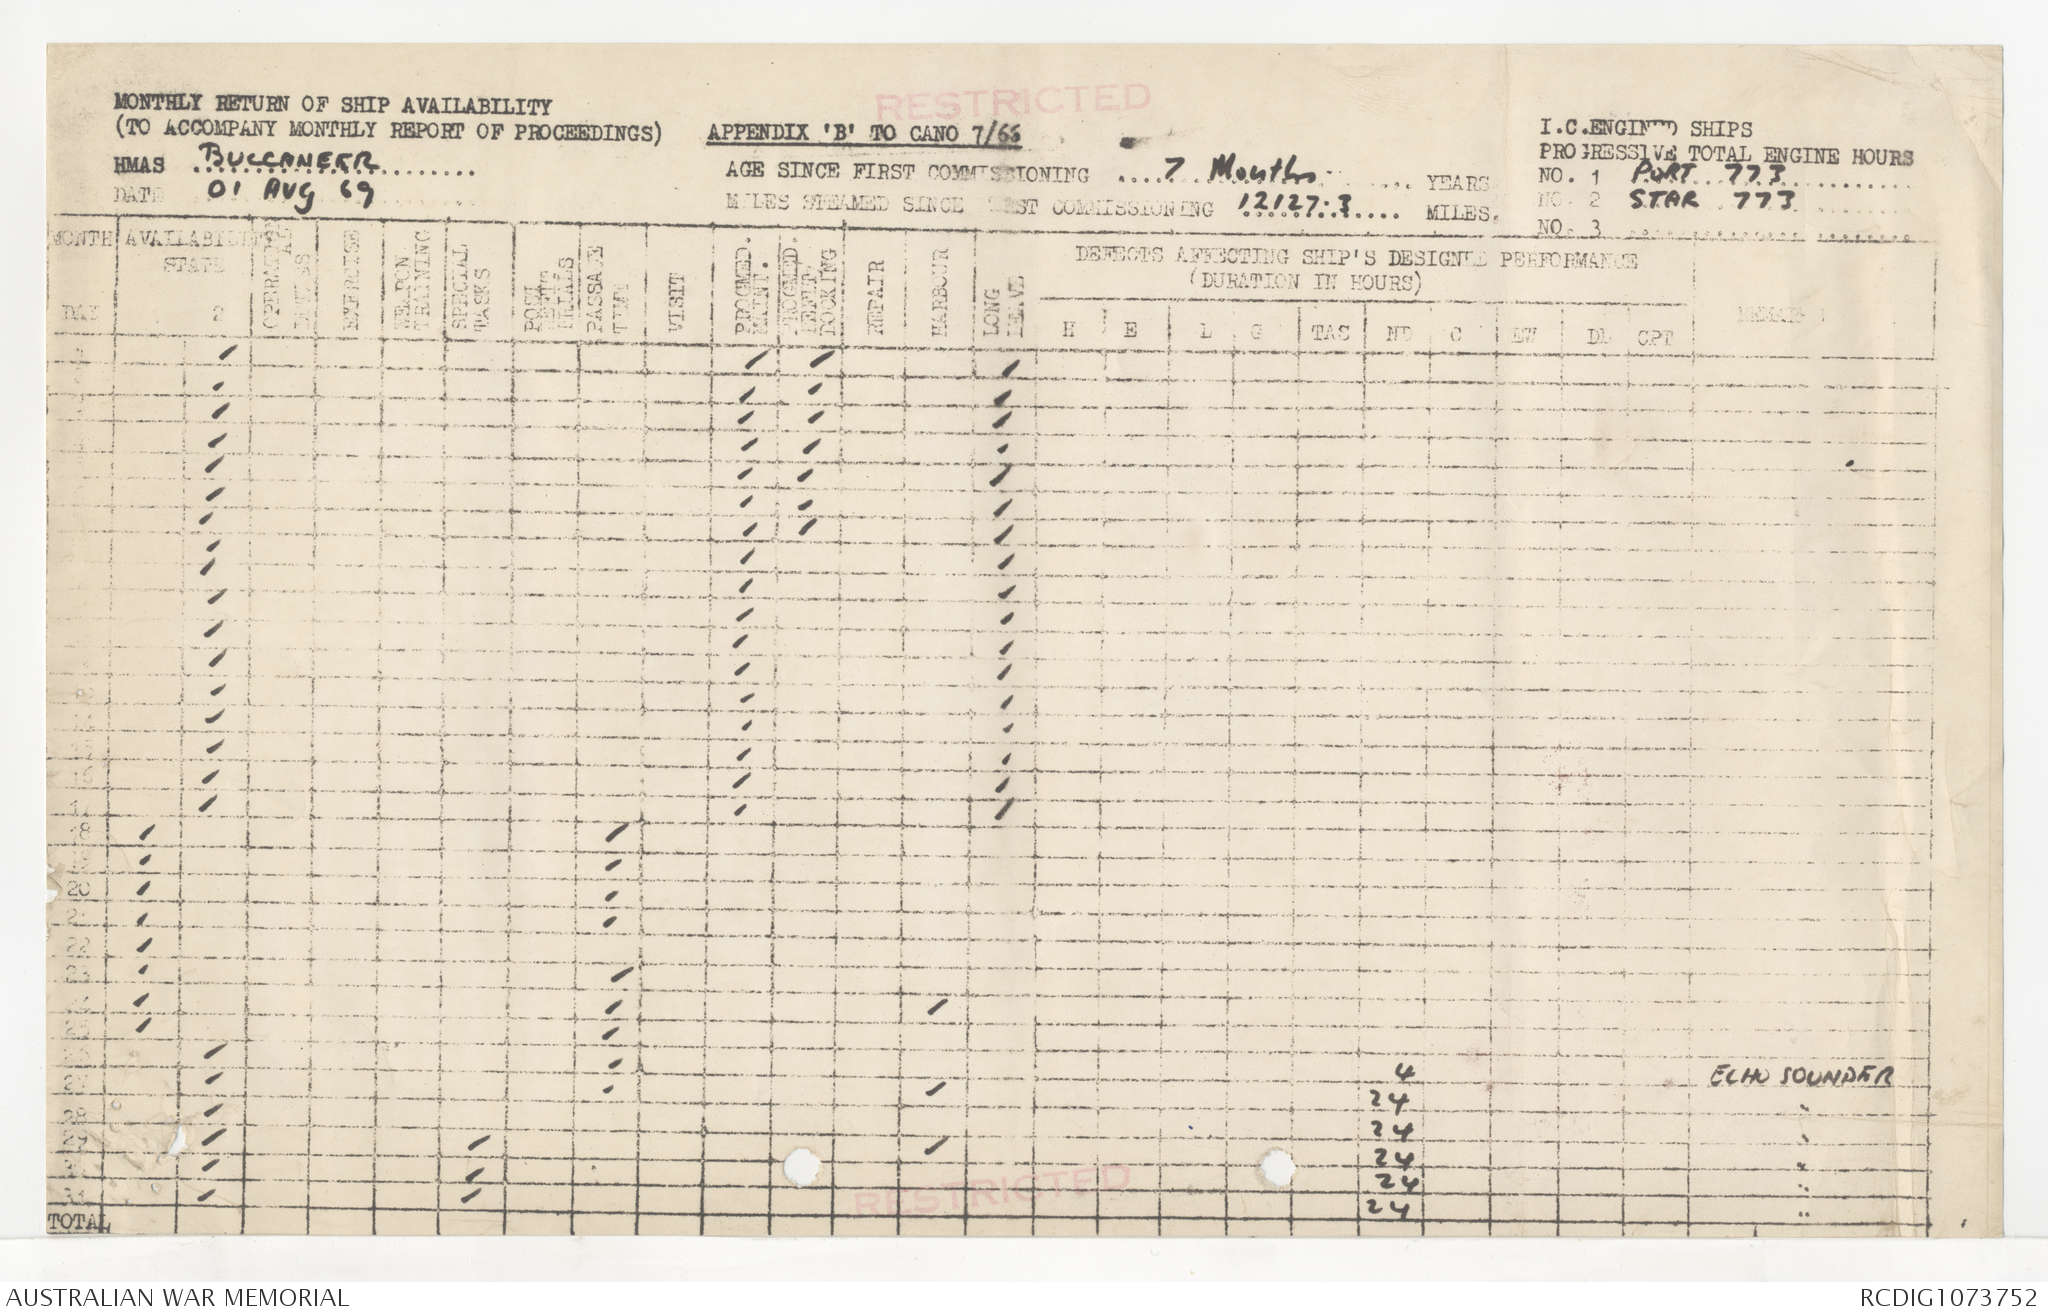 RESTRICTED
MONTHLY RETURN OF SHIP AVAILABILITY
(TO ACCOMPANY MONTHLY REPORT OF PROCEEDINGS)
APPENDIX 'B' TO CANO 7/66
I.C.ENGINED SHIPS
PROGRESSIVE TOTAL ENGINE HOURS
HMAS BUCCANEER
AGE SINCE FIRST COMMISSIONING .... 7 Months ........ YEARS
NO. 1 PORT 773
DATE 01 AUG 69
MILES STEAMED SINCE FIRST COMMISSIONING 12127.3 MILES.
NO. 2 STAR 773
NO. 3
MONTH
AVAILABILITY
STATE
DAY
2
OPERATIONAL
DUTIES
EXERCISE
WEAPON
TRAINING
SPECIAL
TASKS
POST
REFIT
TRIALS
PASSAGE
TIME
VISIT
PROGMED.
MAINT.
PROGMED.
REFIT
DOCKING
REPAIR
HARBOUR
LONG
LEAVE
DEFECTS AFFECTING SHIP'S DESIGNED PERFORMANCE
(DURATION IN HOURS)
H E L G TAS ND C EW DL CPT
REMARKS
1
4
14
15
16
17
18
19
20
21
22
23
24
25
26
27 4 ECHO SOUNDER
24 "
28 24 "
29 24 "
24 "
31 24 "
TOTAL
RESTRICTED
AUSTRALIAN WAR MEMORIAL
RCDIG1073752